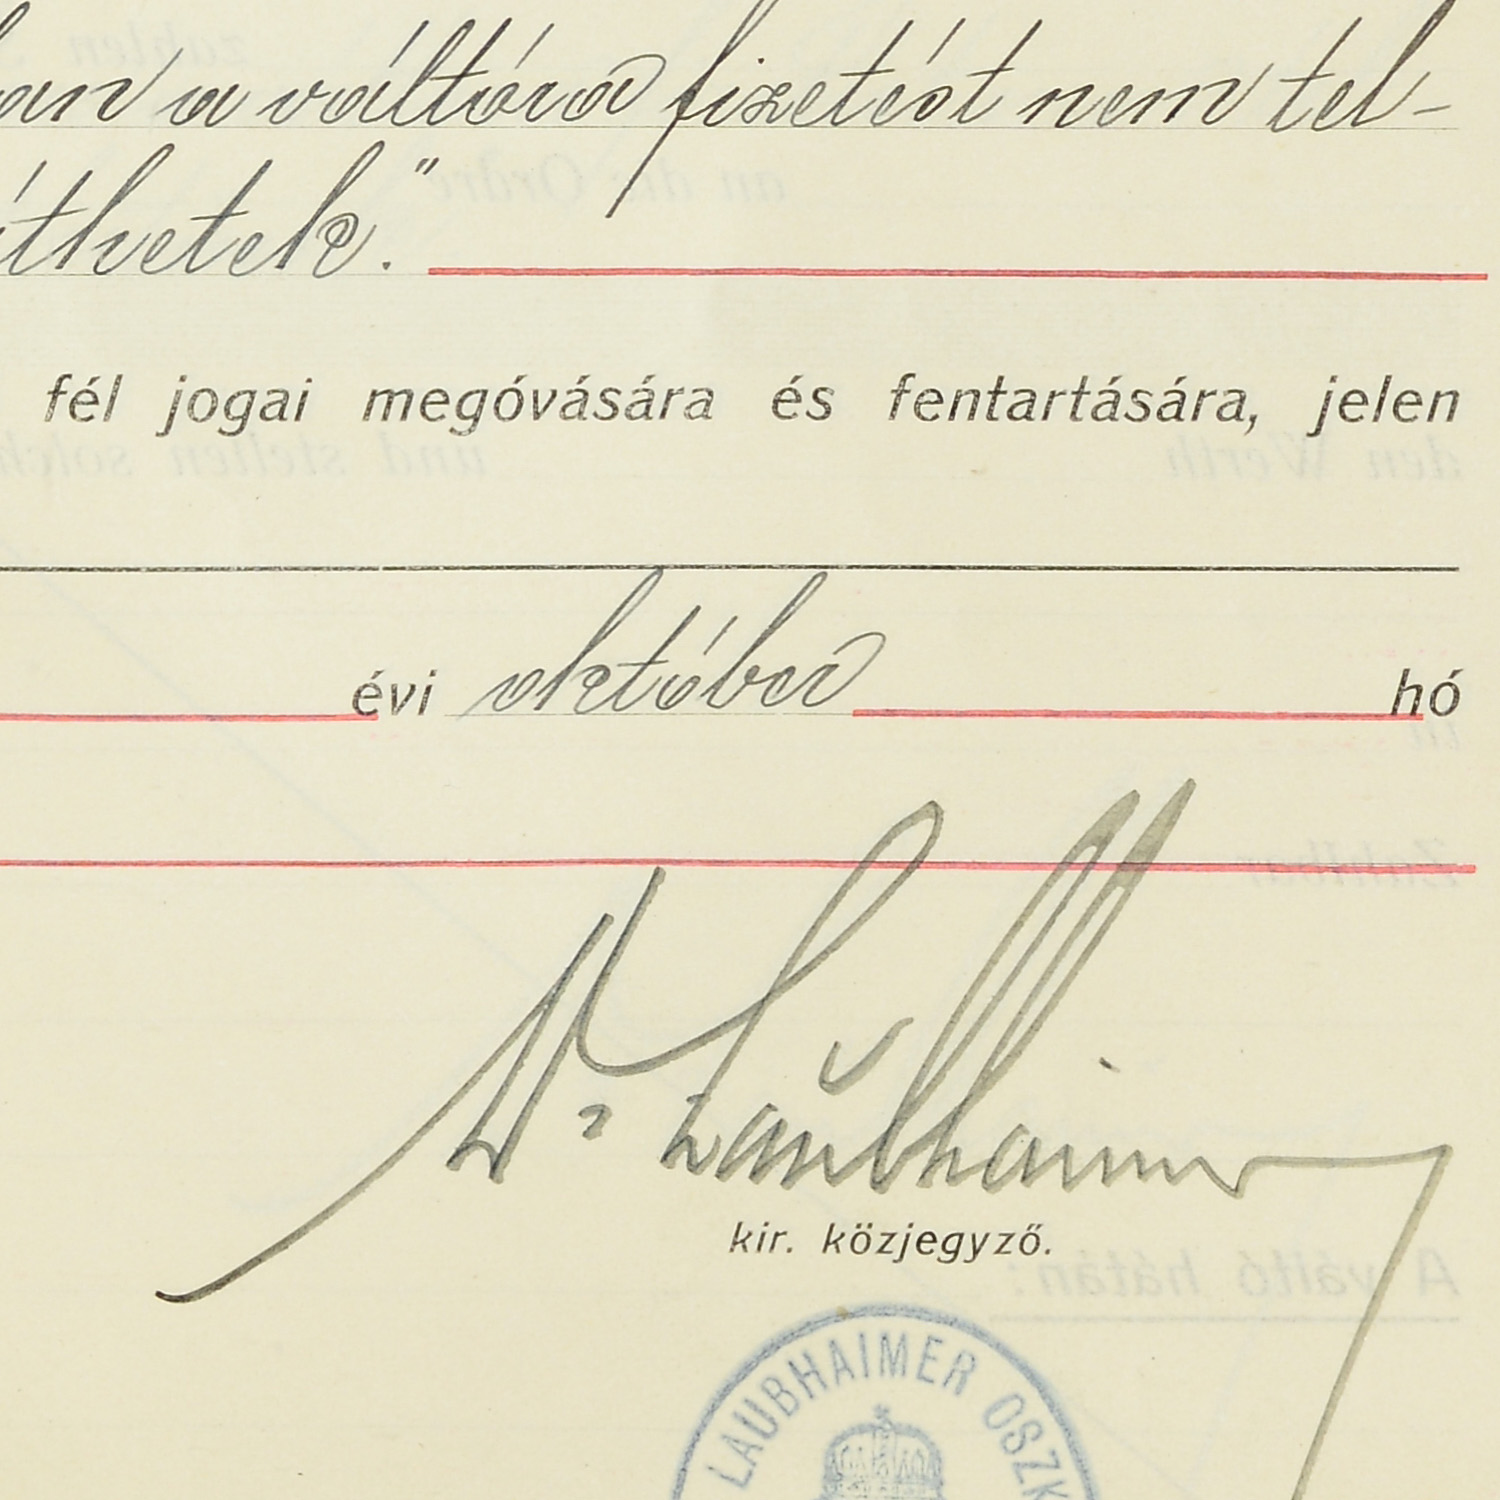 a váltóra fizetést nem tel-
íthetek."
fél jogai megóvására és fentartására, jelen
évi október hó
Dr Laubhaimer
kir. közjegyző.
LAUBHAIMER OSZK
zahlen
an die Ordre
den Werth und stellen solch
in
Zahlbar
A váltó hátán: